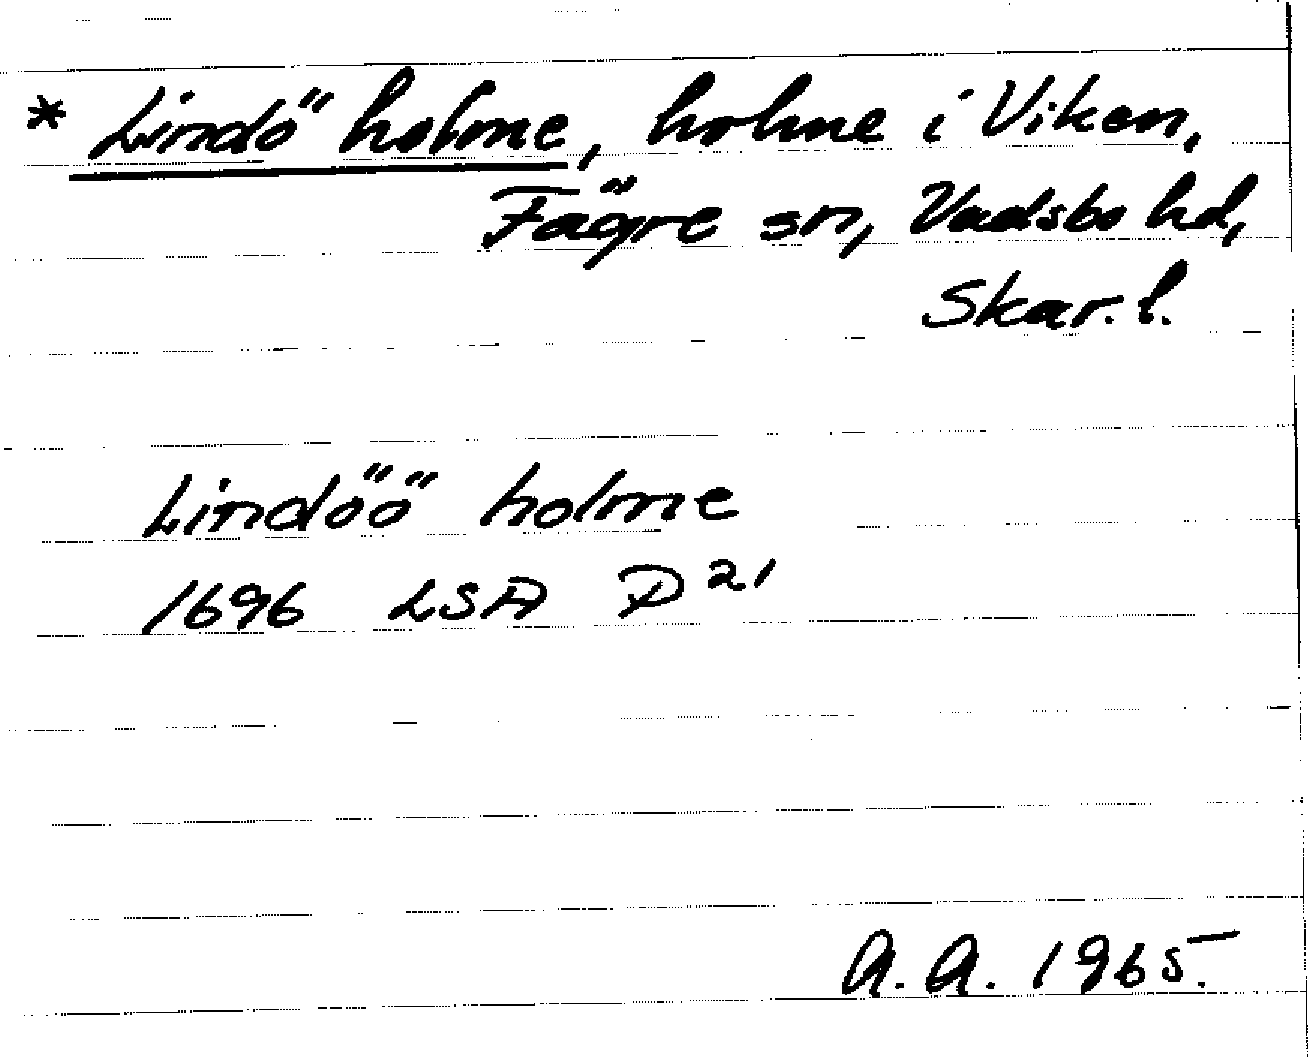 * Lindö holme, holme i Viken,
Fägre sn, Vadsbo hd,
Skar. l.
Lindöö holme
1696 LSA P21
A. A. 1965.